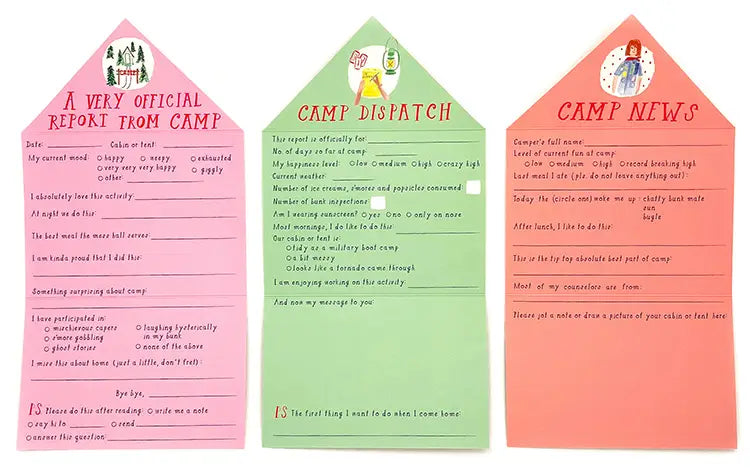 A VERY OFFICIAL
REPORT FROM CAMP
Date: Cabin or tent:
My current mood: happy weepy exhausted
very very very happy giggly
other
I absolutely love this activity:
At night we do this:
The best meal the mess hall serves:
I am kinda proud that I did this:
Something surprising about camp:
I have participated in:
mischievous capers laughing hysterically
in my bunk
s'more gobbling
ghost stories none of the above
I miss this about home (just a little, don't fret):
Bye bye,
P.S. Please do this after reading: write me a note
say hi to send
answer this question:
CAMP DISPATCH
This report is officially for:
No. of days so far at camp:
My happiness level: low medium high crazy high
Current weather:
Number of ice creams, s'mores and popsicles consumed
Number of bunk inspections
Am I wearing sunscreen? yes no only on nose
Most mornings, I do like to do this:
Our cabin or tent is:
tidy as a military boot camp
a bit messy
looks like a tornado came through
I am enjoying working on this activity:
And now my message to you:
P.S. The first thing I want to do when I come home:
CAMP NEWS
Camper's full name:
Level of current fun at camp:
low medium high record breaking high
Last meal I ate (pls. do not leave anything out):
Today the (circle one) woke me up: chatty bunk mate
sun
bugle
After lunch, I like to do this:
This is the tip top absolute best part of camp:
Most of my counselors are from:
Please jot a note or draw a picture of your cabin or tent here: